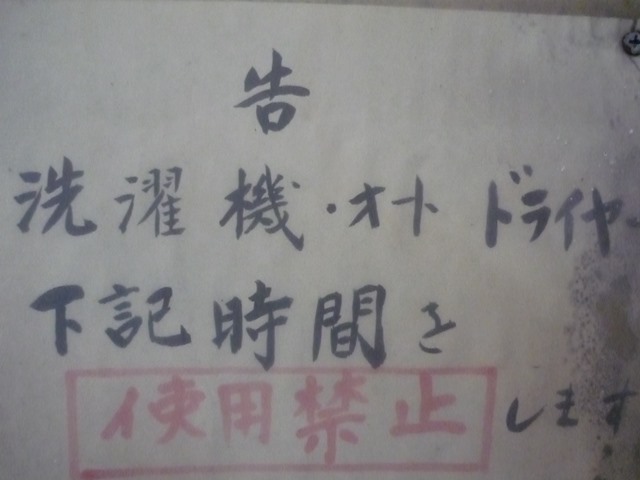 告
洗濯機・オートドライヤー
下記時間を
使用禁止します